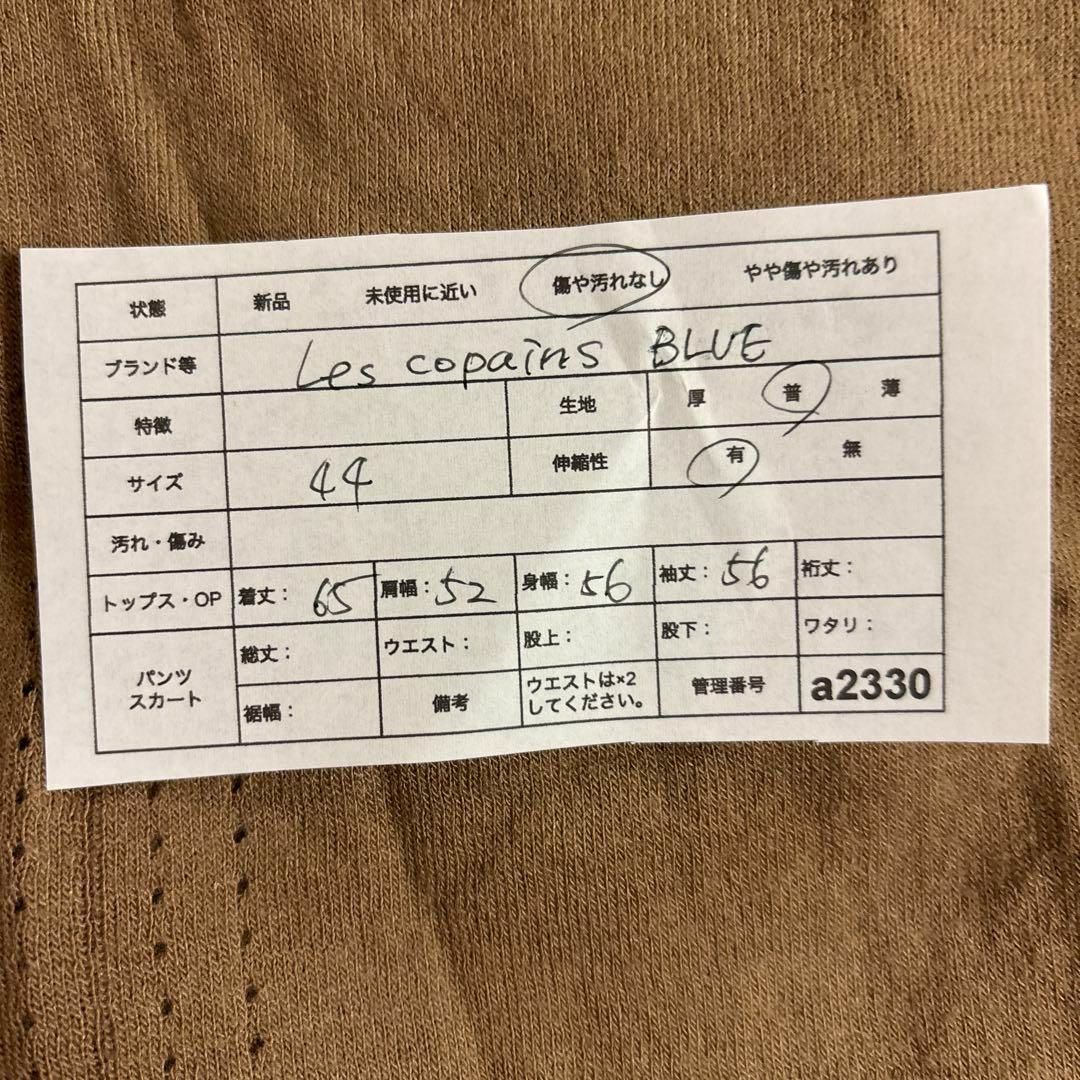 状態 新品 未使用に近い 傷や汚れなし やや傷や汚れあり
ブランド等 Les copains BLUE
特徴 生地 厚 普 薄
サイズ 44 伸縮性 有 無
汚れ・傷み
トップス・OP 着丈: 65 肩幅: 52 身幅: 56 袖丈: 56 裄丈:
パンツ スカート 総丈: ウエスト: 股上: 股下: ワタリ:
裾幅: 備考 ウエストは×2してください。 管理番号 a2330